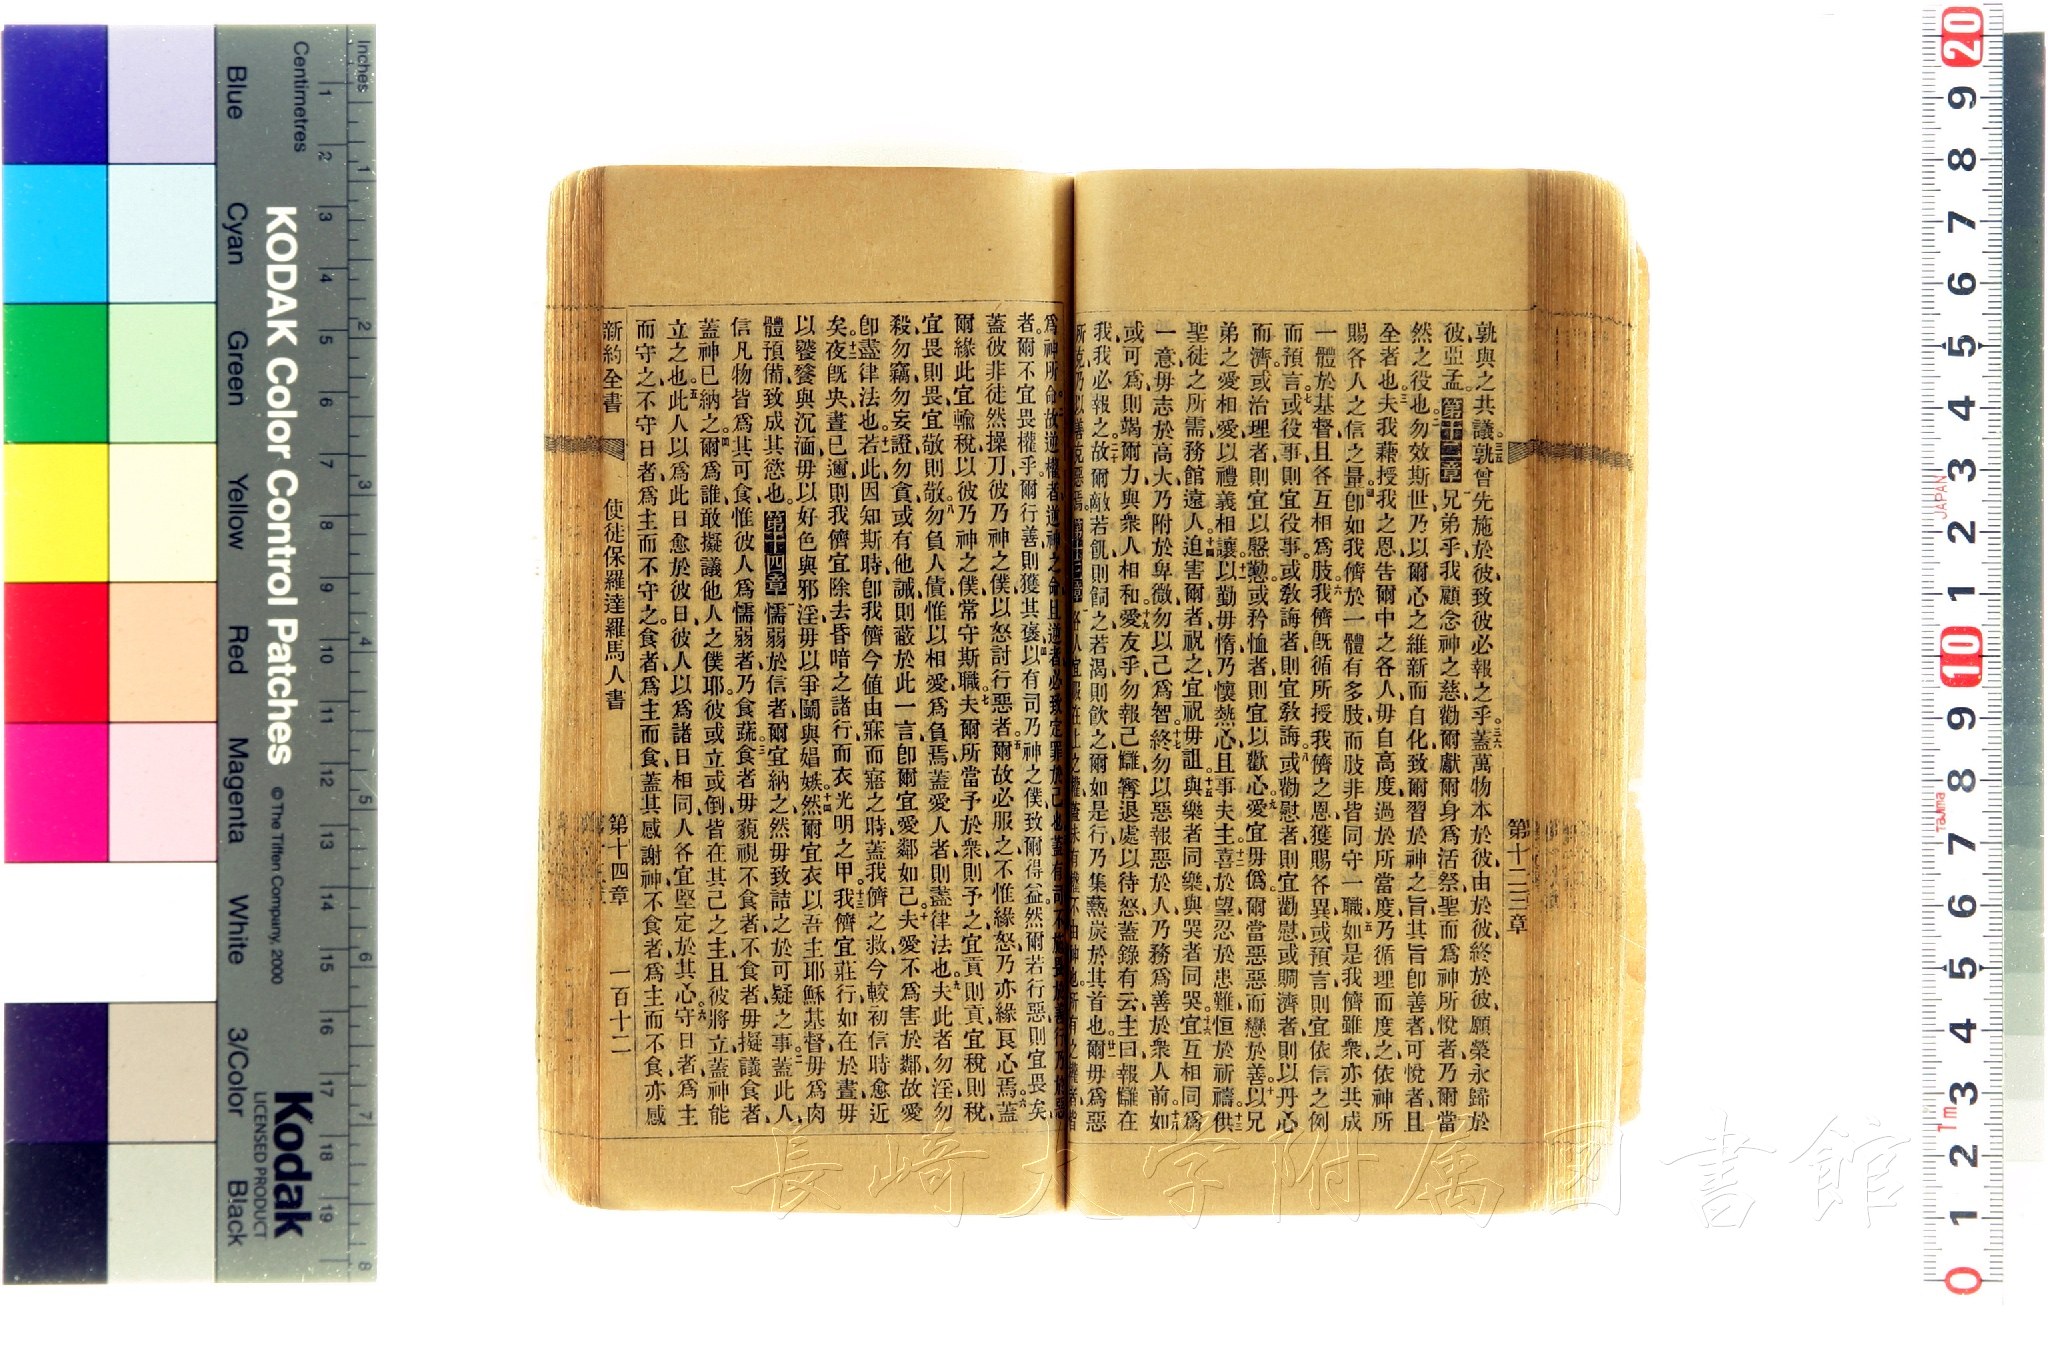 孰與之共議、孰曾先施於彼、致彼必報之乎、蓋萬物本於彼、由於彼、終於彼、願榮永歸於
彼、亞孟。第十二章 兄弟乎、我顧念神之慈、勸爾獻爾身爲活祭、聖而爲神所悅者、乃爾當
然之役也、勿效斯世、乃以爾心之維新而自化、致爾習於神之旨、其旨卽善者、可悅者、且
全者也、夫我藉授我之恩、告爾中之各人、毋自高度、過於所當度、乃循理而度之、依神所
賜各人之信之量、卽如我儕於一體有多肢、而肢非皆同守一職、如是我儕雖衆、亦共成
一體於基督、且各互相爲肢、我儕旣循所授我儕之恩、獲賜各異、或預言、則宜依信之例
而預言、或役事、則宜役事、或敎誨者、則宜敎誨、或勸慰者、則宜勸慰、或賙濟者、則以丹心
而濟、或治理者、則宜以慇懃、或矜恤者、則宜以歡心、愛宜毋僞、爾當惡惡而戀於善、以兄
弟之愛相愛、以禮義相讓、以勤毋惰、乃懷熱心、且事夫主、喜於望、忍於患難、恒於祈禱、供
聖徒之所需、務館遠人、迫害爾者祝之、宜祝毋詛、與樂者同樂、與哭者同哭、宜互相同爲
一意、毋志於高大、乃附於卑微、勿以己爲智、終勿以惡報惡於人、乃務爲善於衆人前、如
或可爲、則竭爾力、與衆人相和、愛友乎、勿報己讎、寧退處以待怒、蓋錄有云、主曰、報讎在
我、我必報之、故爾敵若飢、則飼之、若渴、則飮之、爾如是行、乃集熱炭於其首也、爾毋爲惡
第十二三章
者、爾不宜畏權乎、爾行善、則獲其褒、以有司乃神之僕、致爾得益、然爾若行惡、則宜畏矣、
蓋彼非徒然操刀、彼乃神之僕、以怒討行惡者、爾故必服之、不惟緣怒、乃亦緣良心焉、蓋
爾緣此宜輸稅、以彼乃神之僕、常守斯職、夫爾所當予於衆則予之、宜貢則貢、宜稅則稅、
宜畏則畏、宜敬則敬、勿負人債、惟以相愛爲負焉、蓋愛人者則盡律法也、夫此者、勿淫、勿
殺、勿竊、勿妄證、勿貪、或有他誡、則蔽於此一言、卽爾宜愛鄰如己、夫愛不爲害於鄰、故愛
卽盡律法也、若此、因知斯時、卽我儕今値由寐而寤之時、蓋我儕之救、今較初信時愈近
矣、夜旣央、晝已邇、則我儕宜除去昏暗之諸行、而衣光明之甲、我儕宜莊行、如在於晝、毋
以饕餮與沉湎、毋以好色與邪淫、毋以爭鬭與娼嫉、然爾宜衣以吾主耶穌基督、毋爲肉
體預備、致成其慾也。第十四章 懦弱於信者、爾宜納之、然毋致詰之於可疑之事、蓋此人
信凡物皆爲其可食、惟彼人爲懦弱者、乃食蔬、食者毋藐視不食者、不食者毋擬議食者、
蓋神已納之、爾爲誰、敢擬議他人之僕耶、彼或立或倒、皆在其己之主、且彼將立、蓋神能
立之也、此人以爲此日愈於彼日、彼人以爲諸日相同、人各宜堅定於其心、守日者、爲主
而守之、不守日者、爲主而不守之、食者、爲主而食、蓋其感謝神、不食者、爲主而不食、亦感
新約全書 使徒保羅達羅馬人書 第十四章 一百十二
Inches
Centimetres
Blue
Cyan
Green
Yellow
Red
Magenta
White
3/Color
Black
KODAK Color Control Patches
© The Tiffen Company, 2000
Kodak
LICENSED PRODUCT
JAPAN
Tajima
長崎大学附属図書館